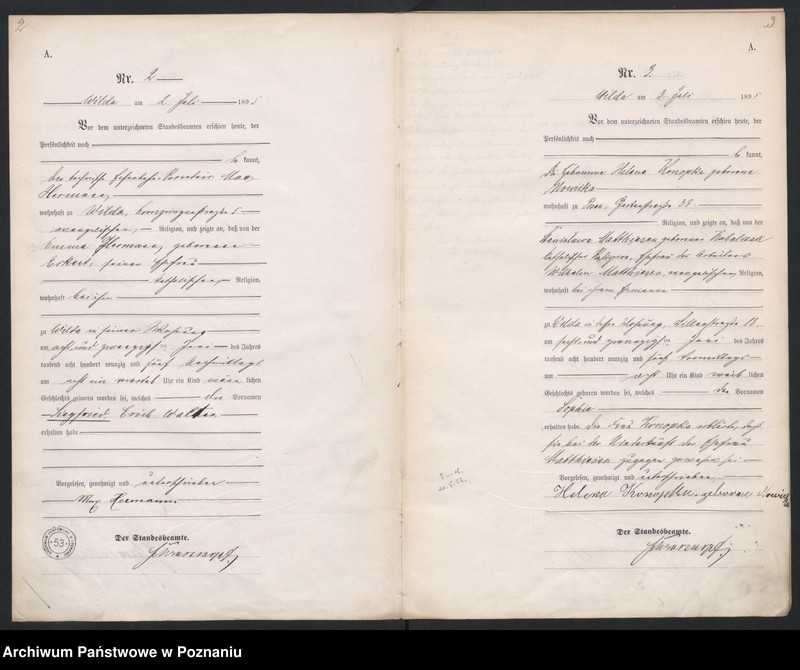 2
A.
Nr. 2
Wilda am 2 Juli 1895
Vor dem unterzeichneten Standesbeamten erschien heute, der
Persönlichkeit nach
be kannt,
der technische Secretair Max
Hermann,
wohnhaft zu Wilda, 5
evangelischer Religion, und zeigte an, daß von der
Emma Hermann, geborenen
Eckert, seiner Ehefrau
katholischer Religion,
wohnhaft bei ihm
zu Wilda in seiner Wohnung
am acht und zwanzigsten Juni des Jahres
tausend acht hundert neunzig und fünf Nachmittags
um acht ein viertel Uhr ein Kind männ lichen
Geschlechts geboren worden sei, welches die Vornamen
Siegfried Erich Walter
erhalten habe
Vorgelesen, genehmigt und unterschrieben
Max Hermann.
Der Standesbeamte.
53
3
A.
Nr. 3.
Wilda am 2. Juli 1895
Vor dem unterzeichneten Standesbeamten erschien heute, der
Persönlichkeit nach
be kannt,
die Hebamme Helene Konopka geborene
Nowicka
wohnhaft zu Posen, 39
Religion, und zeigte an, daß von der
Stanislawa Matthiesen geborenen
katholischer Religion, Ehefrau des Arbeiters
Wilhelm Matthiesen, evangelischer Religion,
wohnhaft bei ihrem Ehemanne
zu Wilda in dessen Wohnung, 13
am sechs und zwanzigsten Juni des Jahres
tausend acht hundert neunzig und fünf Vormittags
um acht Uhr ein Kind weib lichen
Geschlechts geboren worden sei, welches den Vornamen
Sophie
erhalten habe. Die Frau Konopka erklärte, daß
sie bei der Niederkunft der Ehefrau
Matthiesen zugegen gewesen sei.
Vorgelesen, genehmigt und unterschrieben
Helena Konopka geborene
Der Standesbeamte.
Archiwum Państwowe w Poznaniu